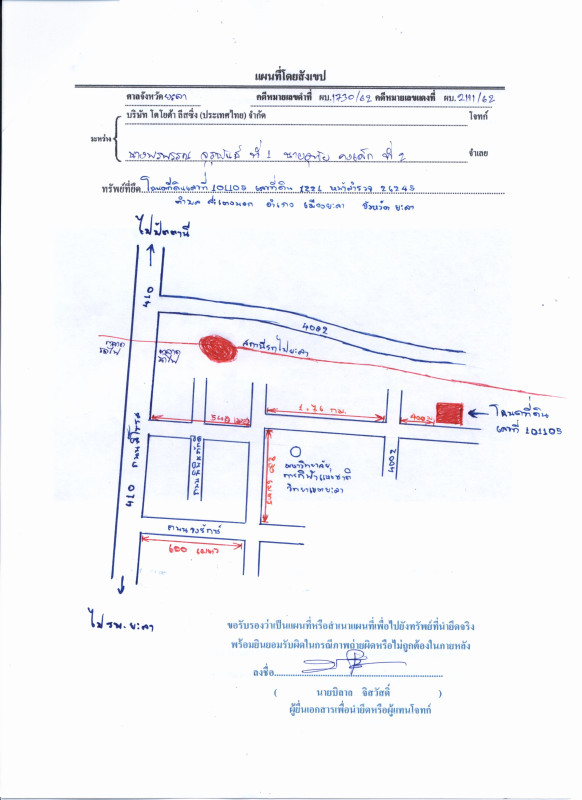 แผนที่โดยสังเขป
ศาลจังหวัดยะลา คดีหมายเลขดำที่ ผบ.1730/62 คดีหมายเลขแดงที่ ผบ.2111/62
บริษัท โตโยต้า ลีสซิ่ง (ประเทศไทย) จำกัด โจทก์
ระหว่าง
ที่ 1 ที่ 2 จำเลย
ทรัพย์ที่ยึด โฉนดที่ดินเลขที่ 101105 เลขที่ดิน 1221 หน้าสำรวจ 26245
ตำบล สะเตงนอก อำเภอ เมืองยะลา จังหวัด ยะลา
ไปปัตตานี
410
4082
สถานีรถไฟยะลา
ตลาด
รถไฟ
ตลาด
รถไฟ
1.76 กม.
โฉนดที่ดิน
เลขที่ 101105
410 ถนนสิโรรส
4082
มหาวิทยาลัย
การกีฬาแห่งชาติ
วิทยาเขตยะลา
600 เมตร
ไป รพ. ยะลา
ขอรับรองว่าเป็นแผนที่หรือสำเนาแผนที่เพื่อไปยังทรัพย์ที่นำยึดจริง
พร้อมยินยอมรับผิดในกรณีภาพถ่ายผิดหรือไม่ถูกต้องในภายหลัง
ลงชื่อ
( นายบิลาล จิสวัสดิ์ )
ผู้ยื่นเอกสารเพื่อนำยึดหรือผู้แทนโจทก์